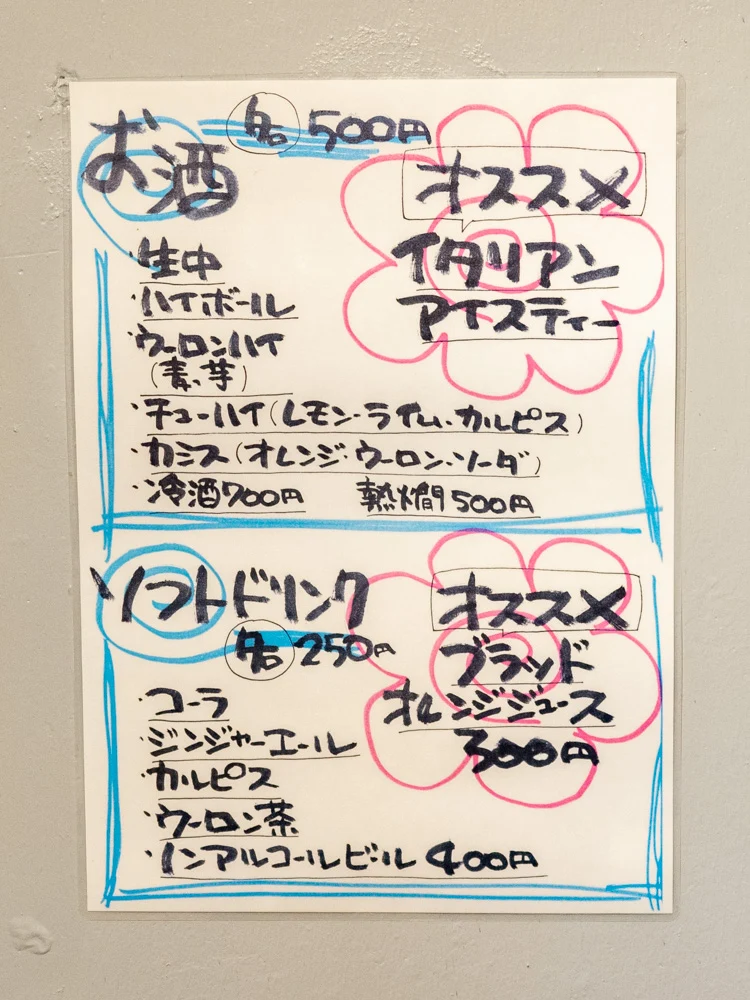 お酒 各500円
オススメ
イタリアン
アイスティー
・生中
・ハイボール
・ウーロンハイ
(麦、芋)
・チューハイ(レモン・ライム・カルピス)
・カシス(オレンジ・ウーロン・ソーダ)
・冷酒700円 熱燗500円
ソフトドリンク
各250円
オススメ
ブラッド
オレンジジュース
300円
・コーラ
・ジンジャーエール
・カルピス
・ウーロン茶
・ノンアルコールビール400円